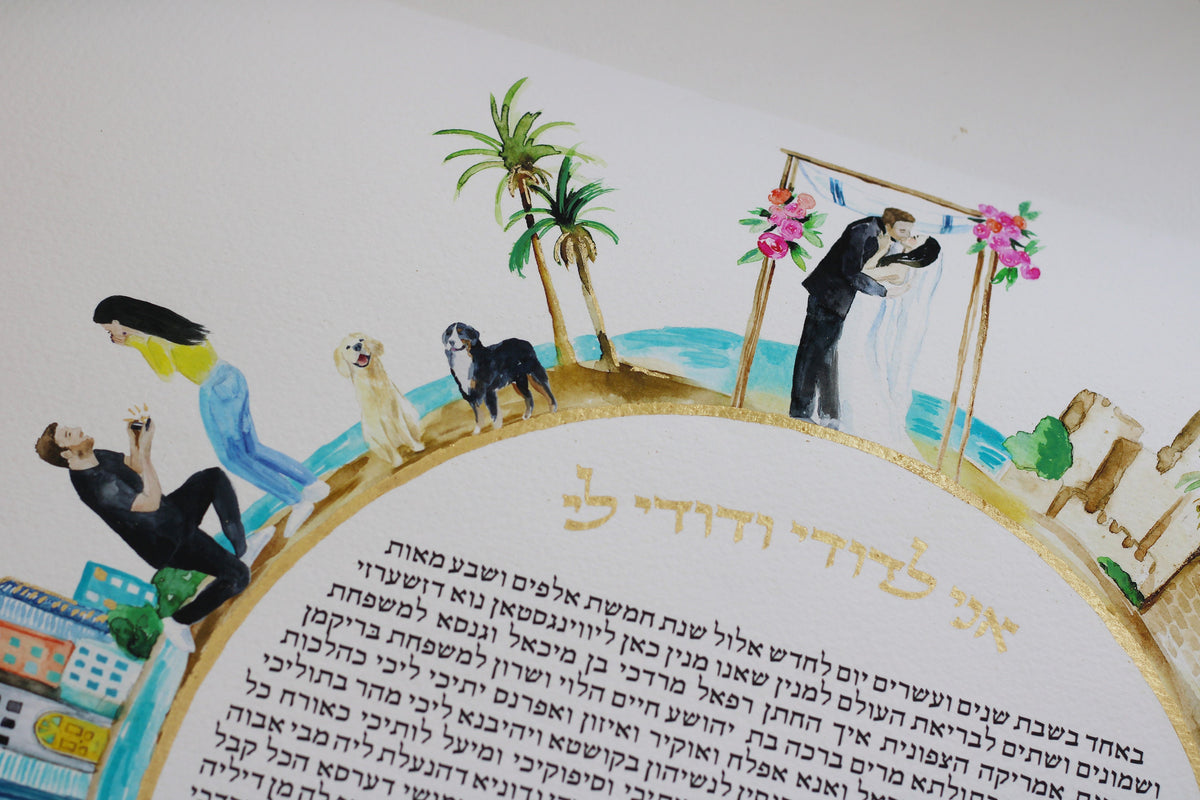 אני לדודי ודודי לי
באחד בשבת שנים ועשרים יום לחדש אלול שנת חמשת אלפים ושבע מאות
ושמונים ושתים לבריאת העולם למנין שאנו מנין כאן ליווינגסטאן נוא דזשערזי
אמריקה הצפונית איך החתן רפאל מרדכי בן מיכאל וגנסא למשפחת
מרים ברכה בת יהושע חיים הלוי ושרון למשפחת בריקמן
ואנא אפלח ואוקיר ואיזון ואפרנס יתיכי ליכי כהלכות
לנשיהון בקושטא ויהיבנא ליכי מהר בתוליכי
וסיפוקיכי ומיעל לותיכי כאורח כל
דהנעלת ליה מבי אבוה
דערסא הכל קבל
מן דיליה